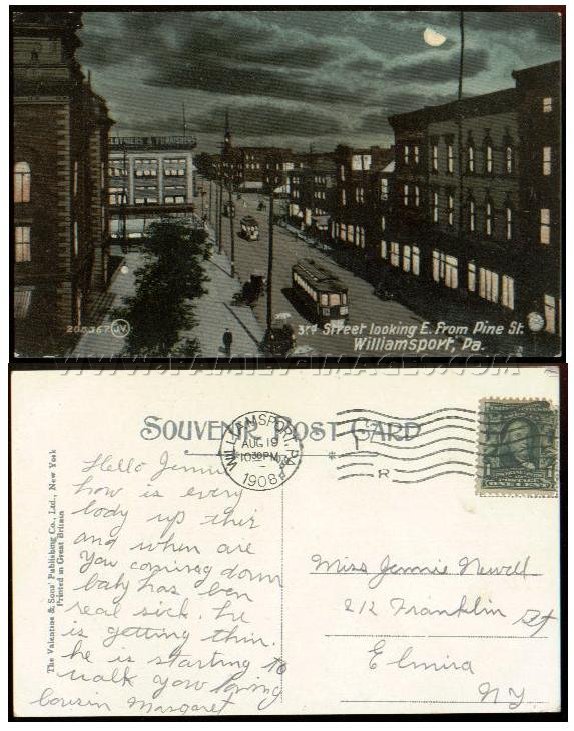 CLOTHIERS & FURNISHERS
206367 JV
3rd Street looking E. From Pine St.
Williamsport, Pa.
WWW.FAMILY-IMAGES.COM
SOUVENIR POST CARD
WILLIAMSPORT, PA.
AUG 19
10 30 PM
1908
The Valentine & Sons' Publishing Co., Ltd., New York
Printed in Great Britain
Hello Jennie
how is every
body up their
and when are
you comeing down
baby has ben
real sick. he
is getting thin.
he is starting to
walk your loving
cousin Margaret
Miss Jennie Newell
212 Franklin St
Elmira
NY.